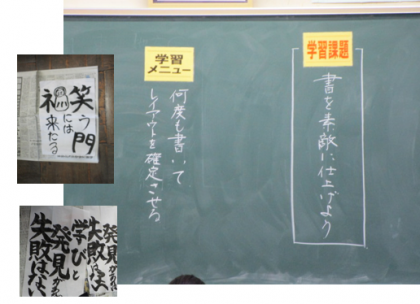 学習課題
書を素敵に仕上げよう
学習
メニュー
何度も書いて
レイアウトを確定させる
笑う門
には
福来たる
発見があれ
失敗はよい
学びと
発見があれ
失敗はよい